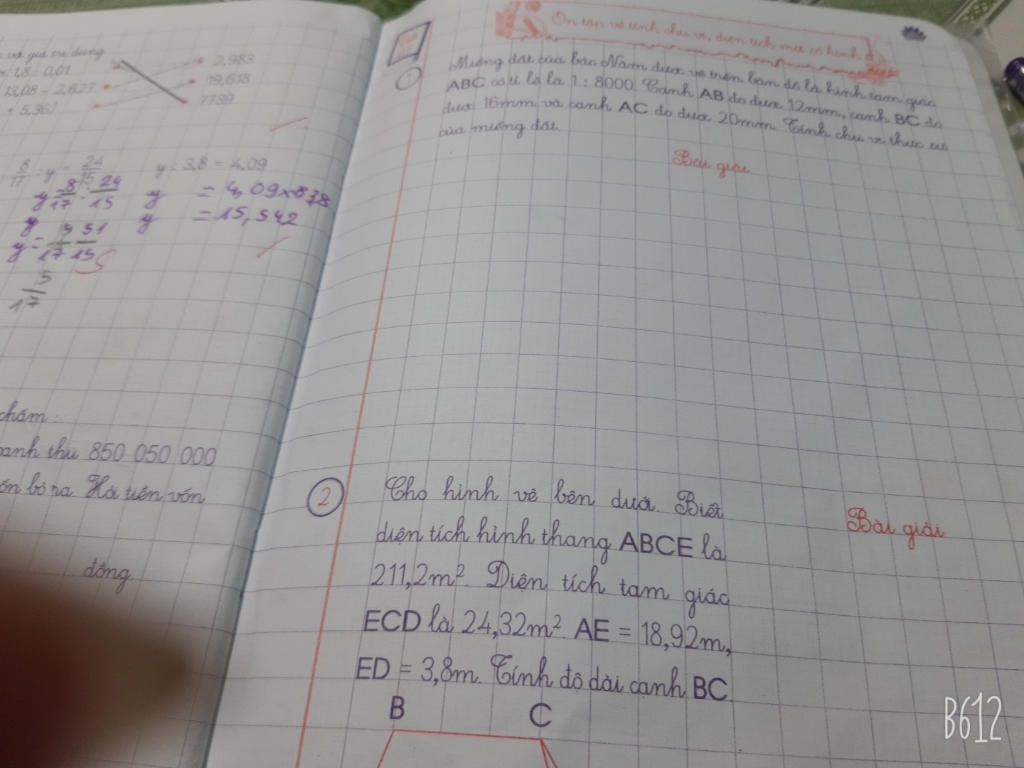 2,983
13,08 - 2,627
19,618
+ 5,361
7739
8/17 : y = 24/15
y : 3,8 = 4,09
y = 4,09 x 3,8
y = 15,542
chấm:
850 050 000
Hỏi tiền vốn
đồng
Ôn tập về tính chu vi, diện tích một số hình
1
Mảnh đất của bác Năm được vẽ trên bản đồ là hình tam giác
ABC có tỉ lệ là 1 : 8000. Cạnh AB đo được 12mm, cạnh BC đo
được 16mm và cạnh AC đo được 20mm. Tính chu vi thực tế
của miếng đất.
Bài giải
2
Cho hình vẽ bên dưới. Biết
diện tích hình thang ABCE là
211,2m² Diện tích tam giác
ECD là 24,32m² AE = 18,92m,
ED = 3,8m. Tính độ dài cạnh BC.
Bài giải
B C
B612